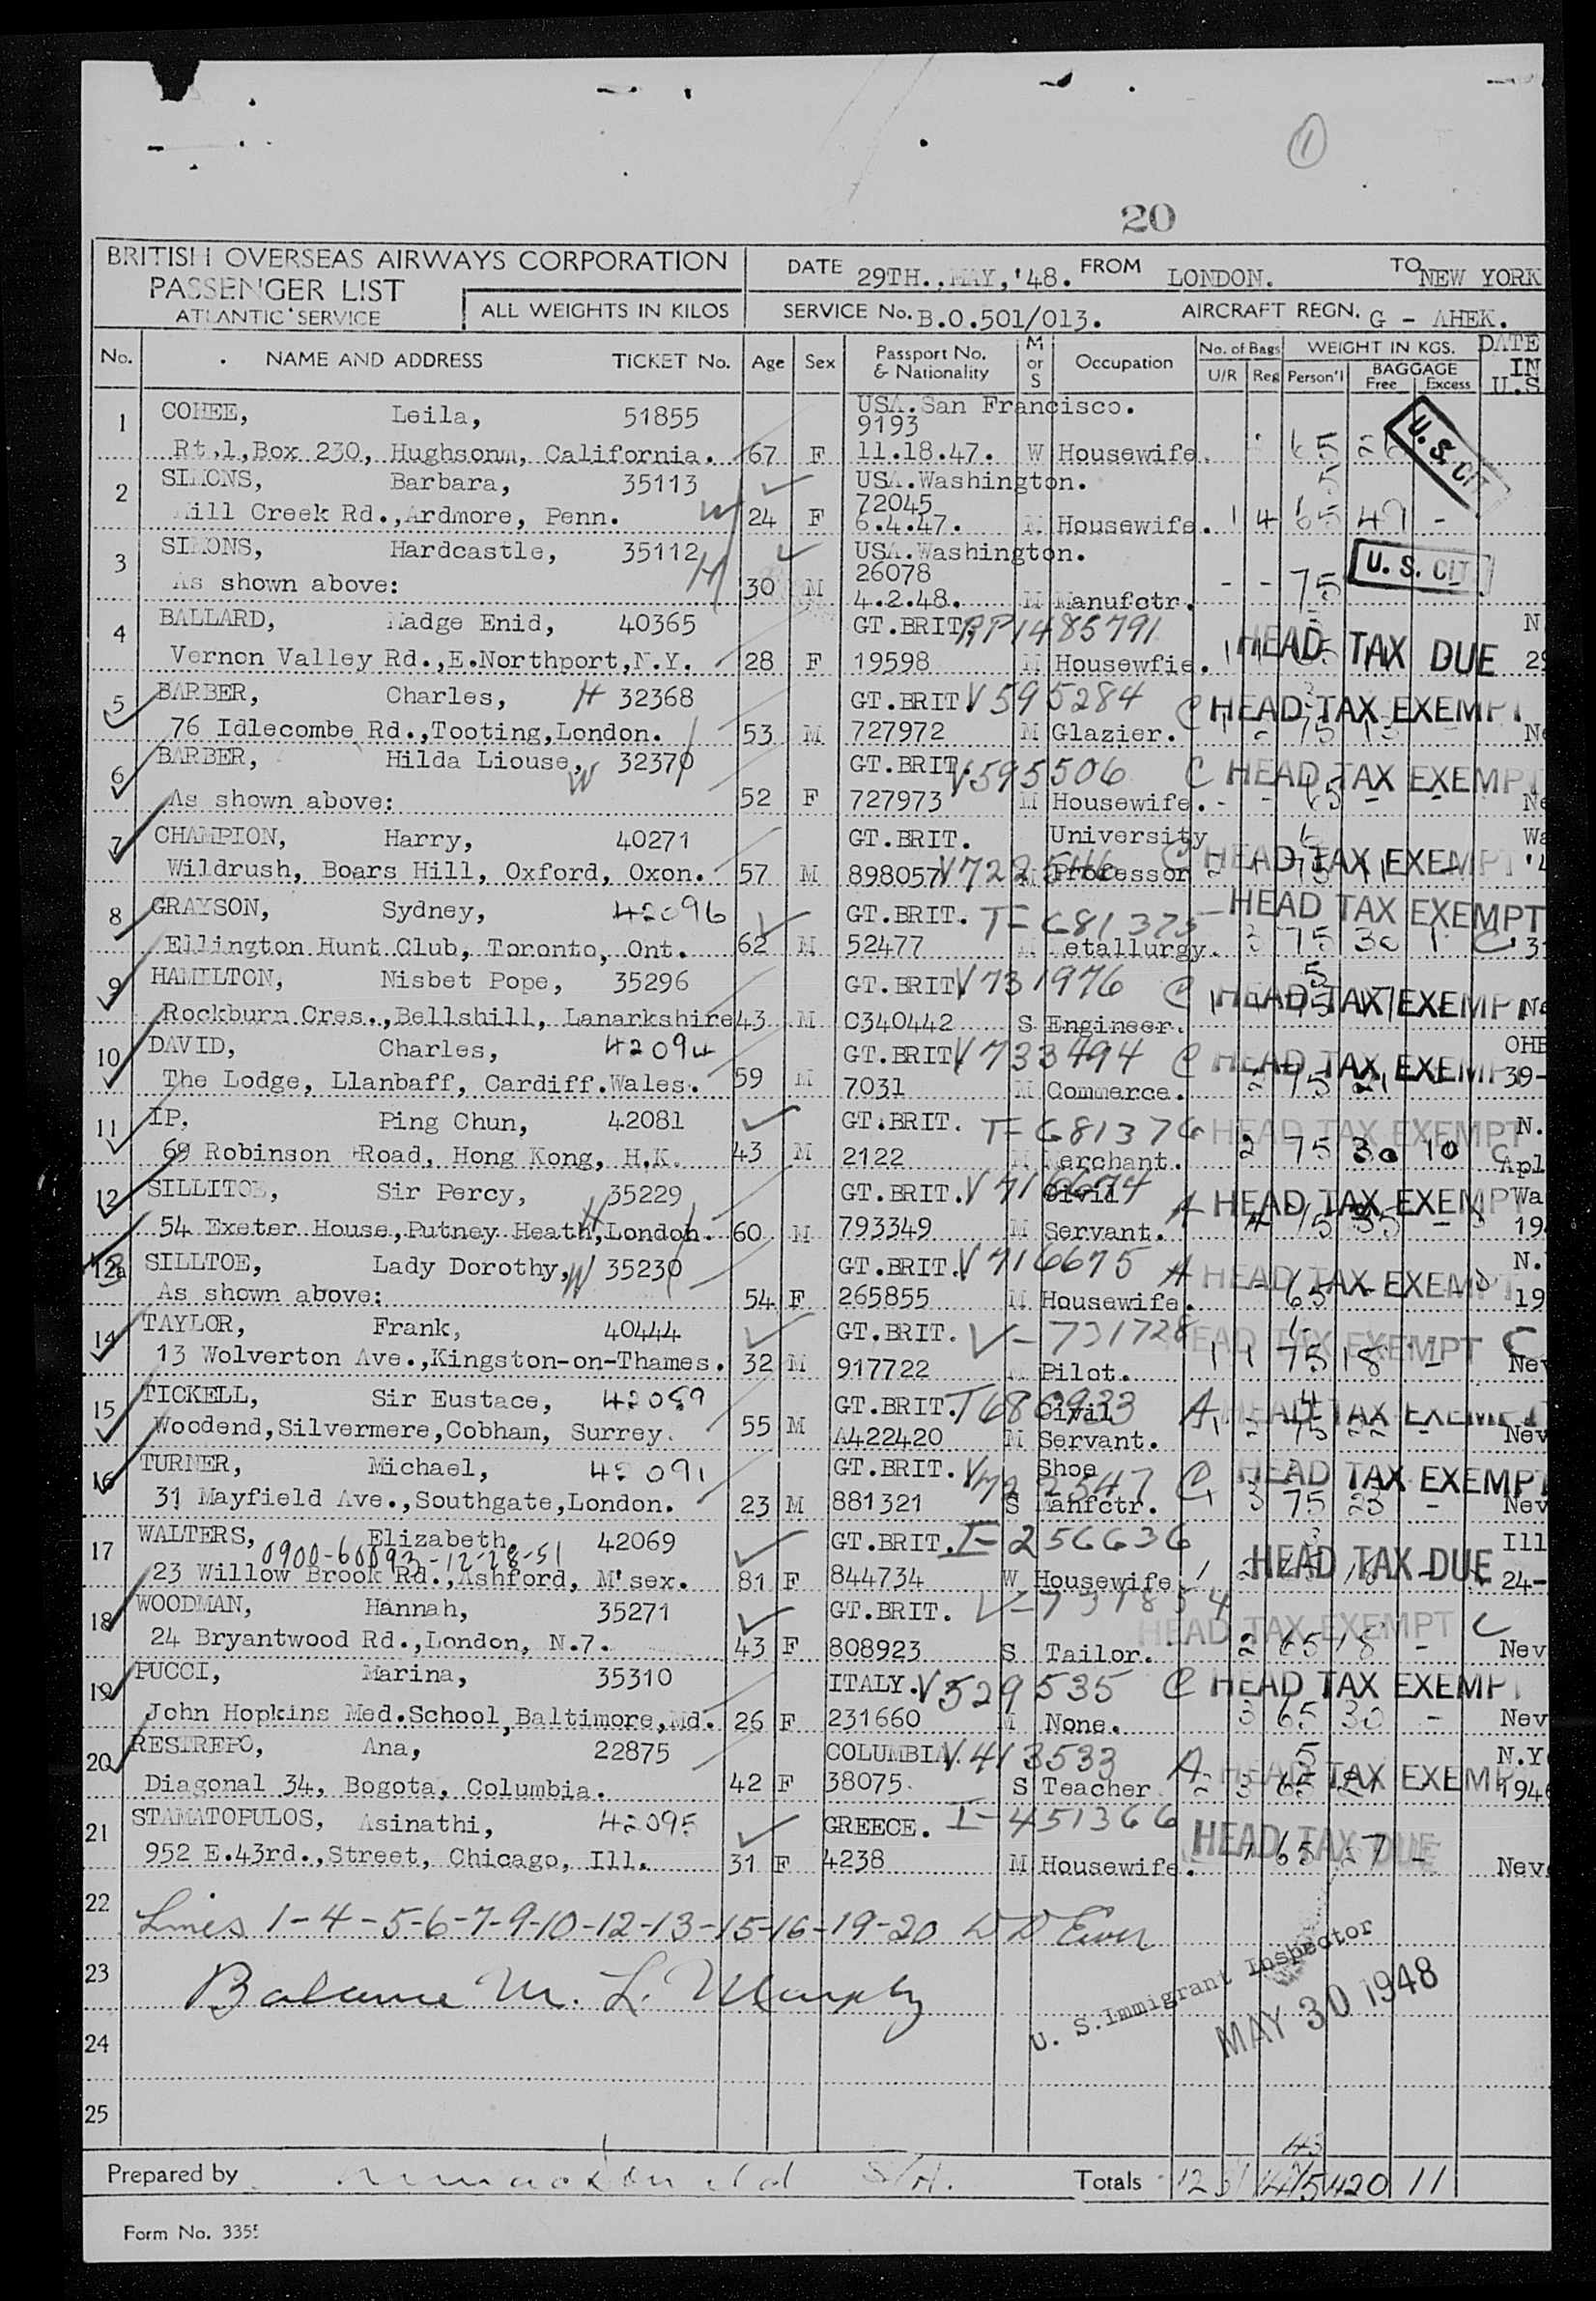 1
20
BRITISH OVERSEAS AIRWAYS CORPORATION
PASSENGER LIST
ATLANTIC SERVICE
ALL WEIGHTS IN KILOS
DATE 29TH.,MAY,'48. FROM LONDON. TO NEW YORK
SERVICE No. B.O.501/013. AIRCRAFT REGN. G - AHEK.
No. NAME AND ADDRESS TICKET No. Age Sex Passport No. & Nationality M or S Occupation No. of Bags U/R Reg WEIGHT IN KGS. Person'l BAGGAGE Free Excess DATE IN U.S
1 COHEE, Leila, 51855 USA.San Francisco.
9193
Rt.1,Box 230, Hughsonm, California. 67 F 11.18.47. W Housewife. 65 U.S. CIT
2 SIMONS, Barbara, 35113 USA.Washington.
72045
Mill Creek Rd.,Ardmore, Penn. W 24 F 6.4.47. M Housewife. 1 4 65 49 -
3 SIMONS, Hardcastle, 35112 H USA.Washington.
26078
As shown above: 30 M 4.2.48. M Manufctr. - - 75 U.S. CIT
4 BALLARD, Madge Enid, 40365 GT.BRIT. RP1485791 HEAD TAX DUE N
Vernon Valley Rd.,E.Northport,N.Y. 28 F 19598 M Housewfie. 29
5 BARBER, Charles, H 32368 GT.BRIT V595284 C HEAD TAX EXEMPT
76 Idlecombe Rd.,Tooting,London. 53 M 727972 M Glazier. 1 2 75 Ne
6 BARBER, Hilda Liouse, W 32370 GT.BRIT. V595506 C HEAD TAX EXEMPT
As shown above: 52 F 727973 M Housewife. - - 65 - - Ne
7 CHAMPION, Harry, 40271 GT.BRIT. University Wa
C HEAD TAX EXEMPT
Wildrush, Boars Hill, Oxford, Oxon. 57 M 898057 V722546 M Professor '4
8 GRAYSON, Sydney, 42096 GT.BRIT. T-681375 HEAD TAX EXEMPT
Ellington Hunt Club, Toronto, Ont. 62 M 52477 M Metallurgy. 3 75 30 1 C 31
9 HAMILTON, Nisbet Pope, 35296 GT.BRIT V731976 C HEAD TAX EXEMP
Rockburn Cres.,Bellshill, Lanarkshire 43 M C340442 S Engineer. Ne
10 DAVID, Charles, 42094 GT.BRIT. V733494 C HEAD TAX EXEMP OHE
The Lodge, Llanbaff, Cardiff.Wales. 59 M 7031 M Commerce. 2 75 21 39-
11 IP, Ping Chun, 42081 GT.BRIT. T-681376 HEAD TAX EXEMPT N.
69 Robinson Road, Hong Kong, H.K. 43 M 2122 M Merchant. 2 75 30 10 C Apl
12 SILLITOE, Sir Percy, 35229 GT.BRIT. V716674 Civil A HEAD TAX EXEMPT Wa
54 Exeter House,Putney Heath,London. H 60 M 793349 M Servant. 4 75 35 - 19
12a 13 SILLTOE, Lady Dorothy, W 35230 GT.BRIT. V716675 A HEAD TAX EXEMPT N.
As shown above: 54 F 265855 M Housewife. - 65 19
14 TAYLOR, Frank, 40444 GT.BRIT. V-731728 HEAD TAX EXEMPT C
13 Wolverton Ave.,Kingston-on-Thames. 32 M 917722 Pilot. 1 1 75 18 - Nev
15 TICKELL, Sir Eustace, 42089 GT.BRIT. T680933 Civil A HEAD TAX EXEMPT
Woodend,Silvermere,Cobham, Surrey. 55 M A422420 M Servant. 1 2 75 22 - Nev
16 TURNER, Michael, 42091 GT.BRIT. V722547 Shoe C HEAD TAX EXEMPT
31 Mayfield Ave.,Southgate,London. 23 M 881321 S Manfctr. 3 75 23 - Nev
17 WALTERS, Elizabeth, 42069 GT.BRIT. I-256636 Ill
0900-60093-12-28-51 HEAD TAX DUE
23 Willow Brook Rd.,Ashford, M'sex. 81 F 844734 W Housewife 1 2 65 18 24-
18 WOODMAN, Hannah, 35271 GT.BRIT. V-731854 HEAD TAX EXEMPT C
24 Bryantwood Rd.,London, N.7. 43 F 808923 S Tailor. 2 65 18 - Nev
19 PUCCI, Marina, 35310 ITALY. V529535 C HEAD TAX EXEMPT
John Hopkins Med.School,Baltimore,Md. 26 F 231660 M None. 3 65 30 - Nev
20 RESTREPO, Ana, 22875 COLUMBIA. V413533 A HEAD TAX EXEMP N.Y
Diagonal 34, Bogota, Columbia. 42 F 38075. S Teacher 2 3 65 21 1946
21 STAMATOPULOS, Asinathi, 42095 GREECE. I-451366 HEAD TAX DUE
952 E.43rd.,Street, Chicago, Ill. 31 F 4238 M Housewife. 65 27 - Nev
22 Lines 1-4-5-6-7-9-10-12-13-15-16-19-20
23 Balance M. L. Murphy
U. S. Immigrant Inspector
MAY 30 1948
24
25
Prepared by Totals 12 420 11
Form No. 3355